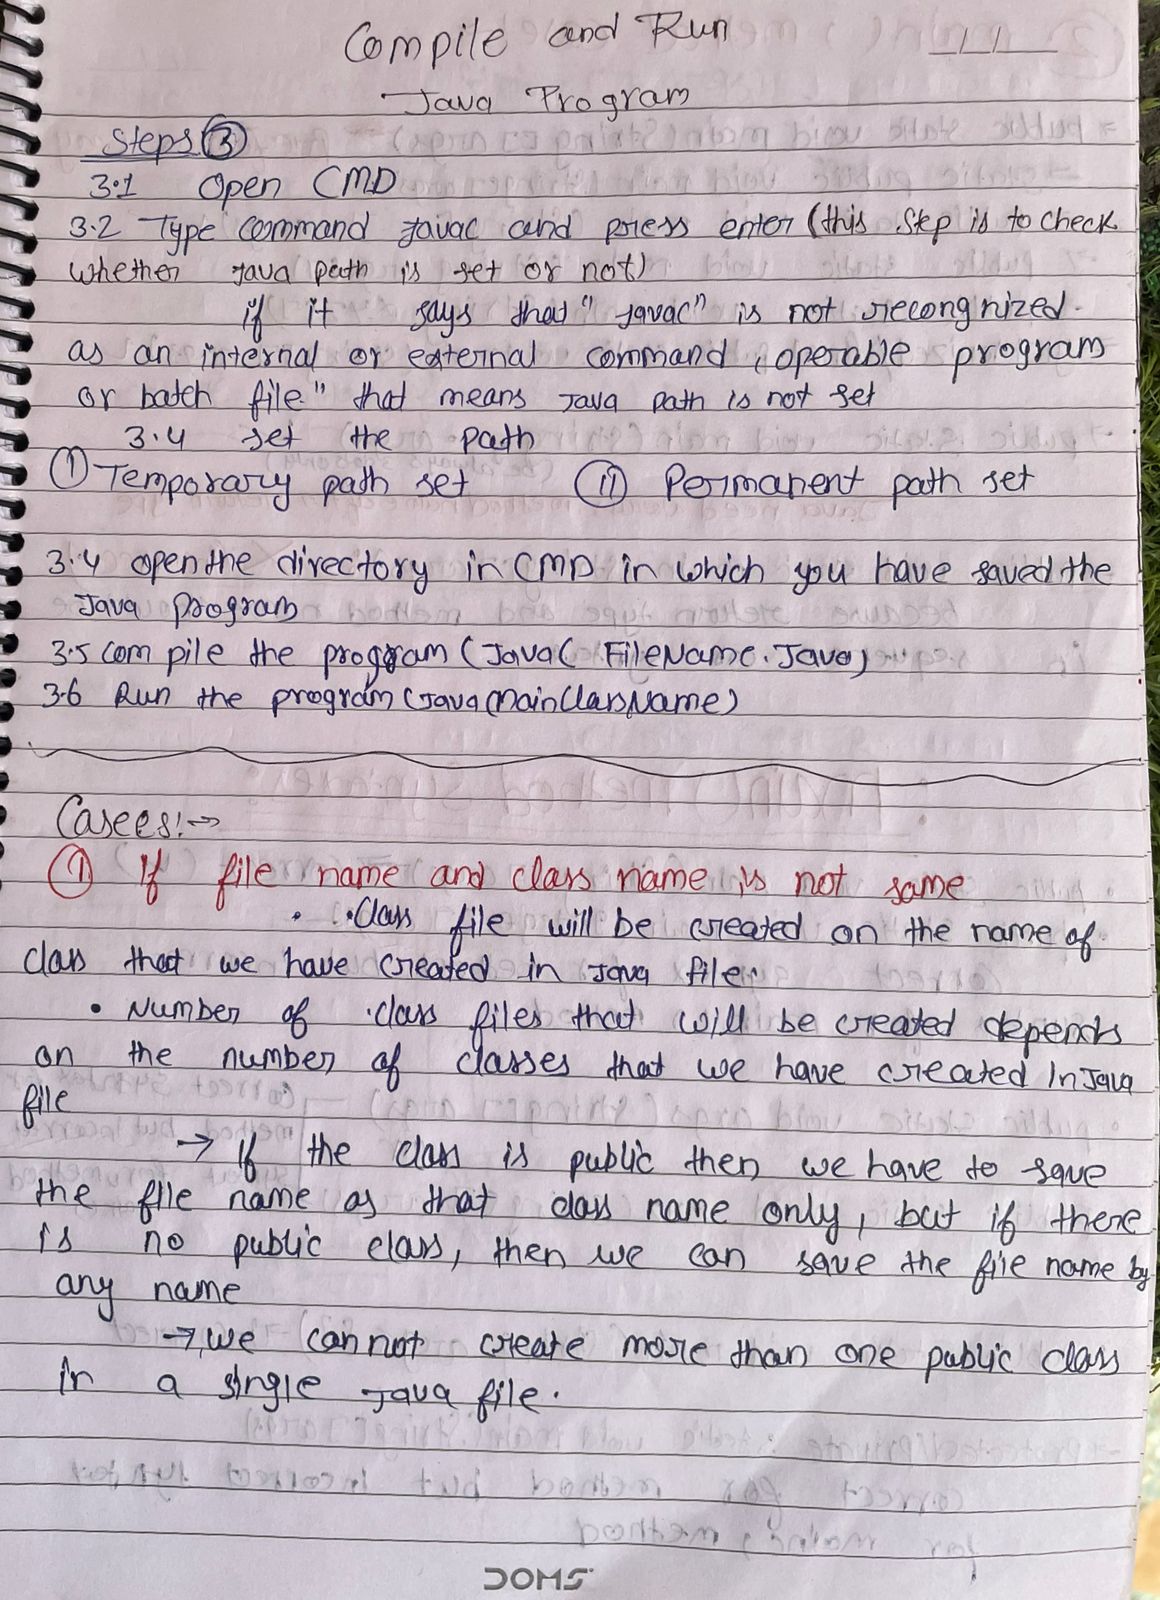 Compile and Run
Java Program
Steps ③
3.1 Open CMD
3.2 Type command javac and press enter (this step is to check
whether java path is set or not)
if it says that "javac" is not recongnized
as an internal or external command, operable program
or batch file" that means Java path is not set
3.4 set the path
① Temporary path set ⑪ Permanent path set
3.4 open the directory in CMD in which you have saved the
Java program
3.5 compile the program (Javac FileName.Java)
3.6 Run the program (Java MainClassName)
Casees:→
① If file name and class name is not same
• .Class file will be created on the name of
class that we have created in Java file.
• Number of .class files that will be created depends
on the number of classes that we have created in Java
file
→ If the class is public then we have to save
the file name as that class name only, but if there
is no public class, then we can save the file name by
any name
→ we cannot create more than one public class
in a single Java file.
DOMS